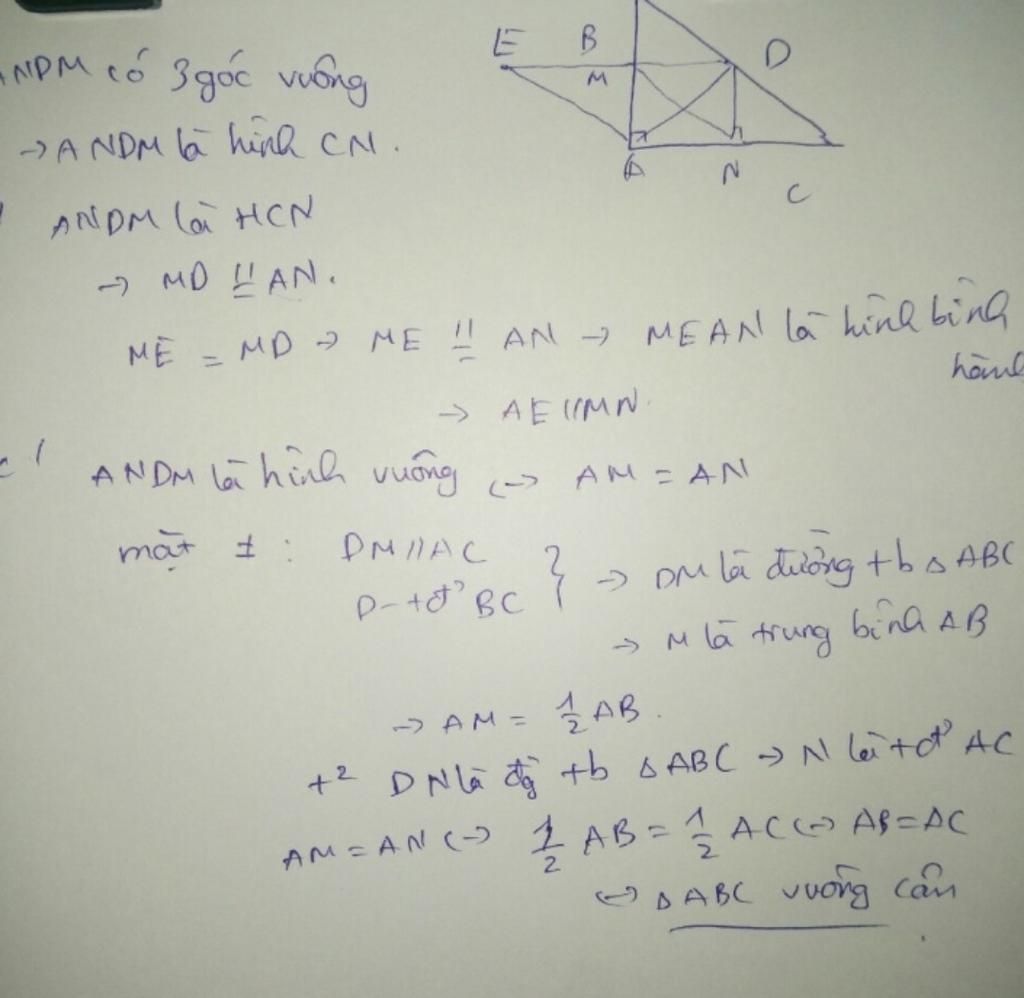 E B D
M
A N C
ANDM có 3 góc vuông
→ ANDM là hình CN.
ANDM là HCN
→ MD // = AN.
ME = MD → ME // = AN → MEAN là hình bình
hành
→ AE // MN.
c/ ANDM là hình vuông <-> AM = AN
mặt ≠ : DM // AC
D - tđ' BC } → DM là đường tb △ ABC
→ M là trung bình AB
→ AM = 1/2 AB.
t² DN là đg tb △ ABC → N là tđ' AC
AM = AN <-> 1/2 AB = 1/2 AC <-> AB = AC
<-> △ ABC vuông cân